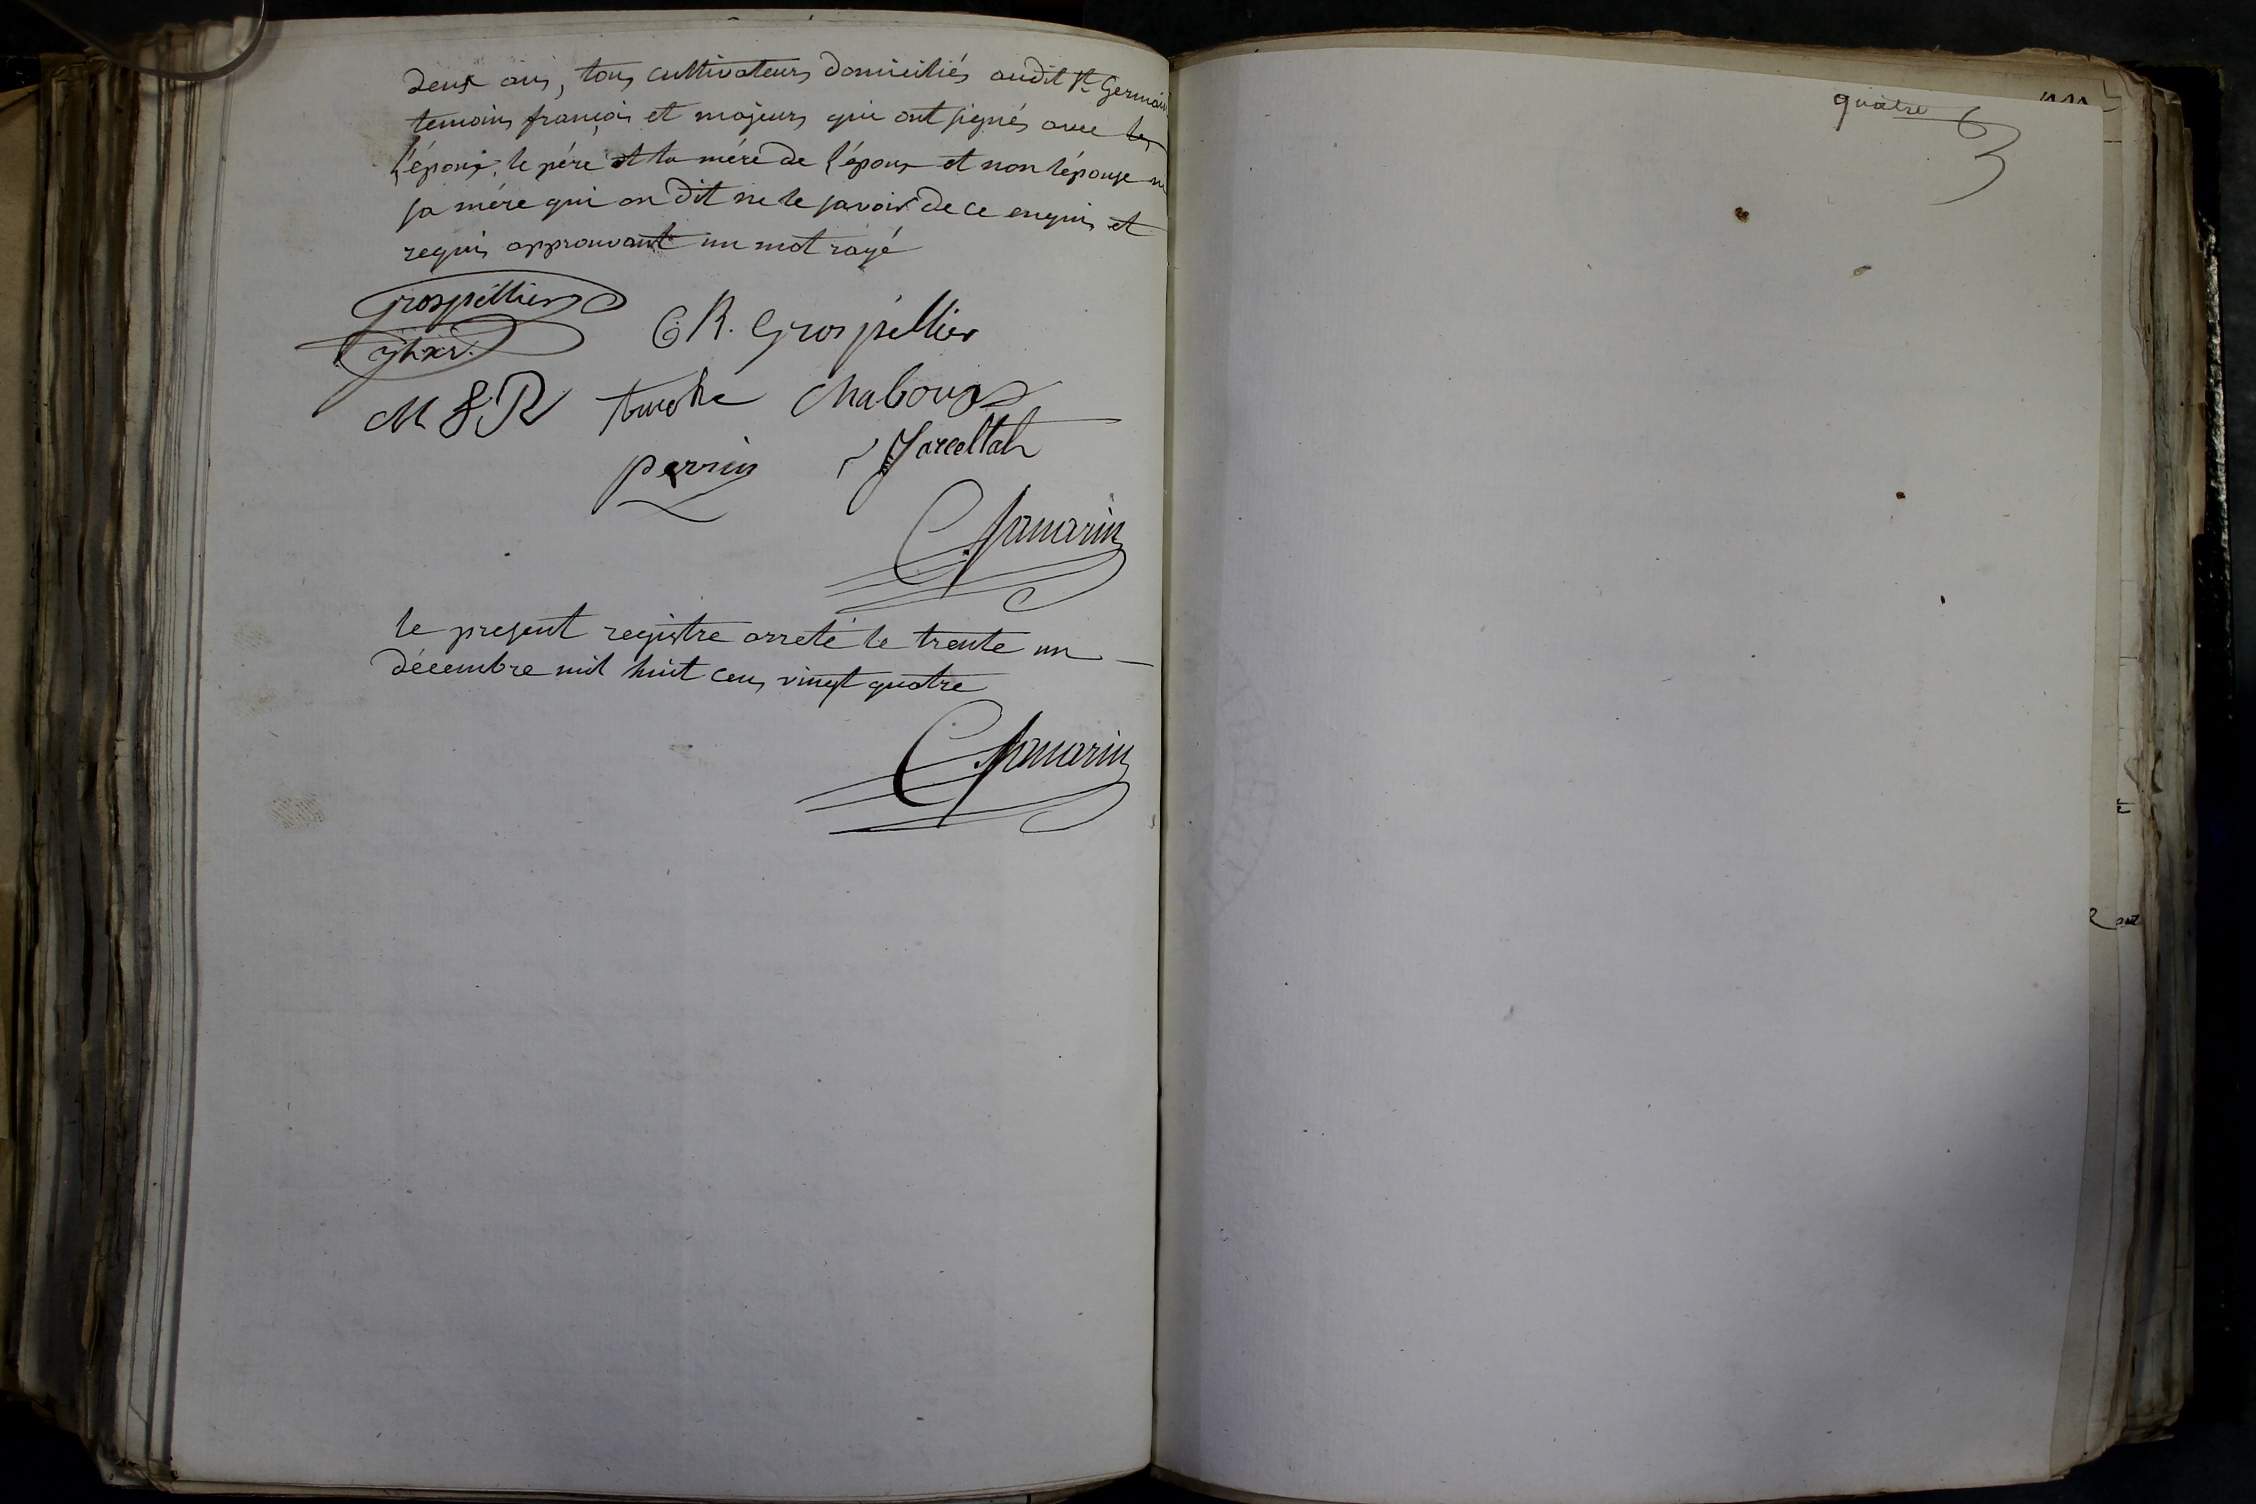 deux ans, tous cultivateurs domiciliés audit St Germain
temoins français et majeurs qui ont signés avec les
l'époux, le pére et la mére de l'époux et non l'épouse ni
sa mére qui on dit ne le savoir de ce enquis et
requis approuvant un mot rayé
grospellier
C R. Grospellier
M F R
Chaboux
perrin
C. Jamarin
le present registre arreté le trente un
décembre mil huit cens vingt quatre
C. Jamarin
quatre